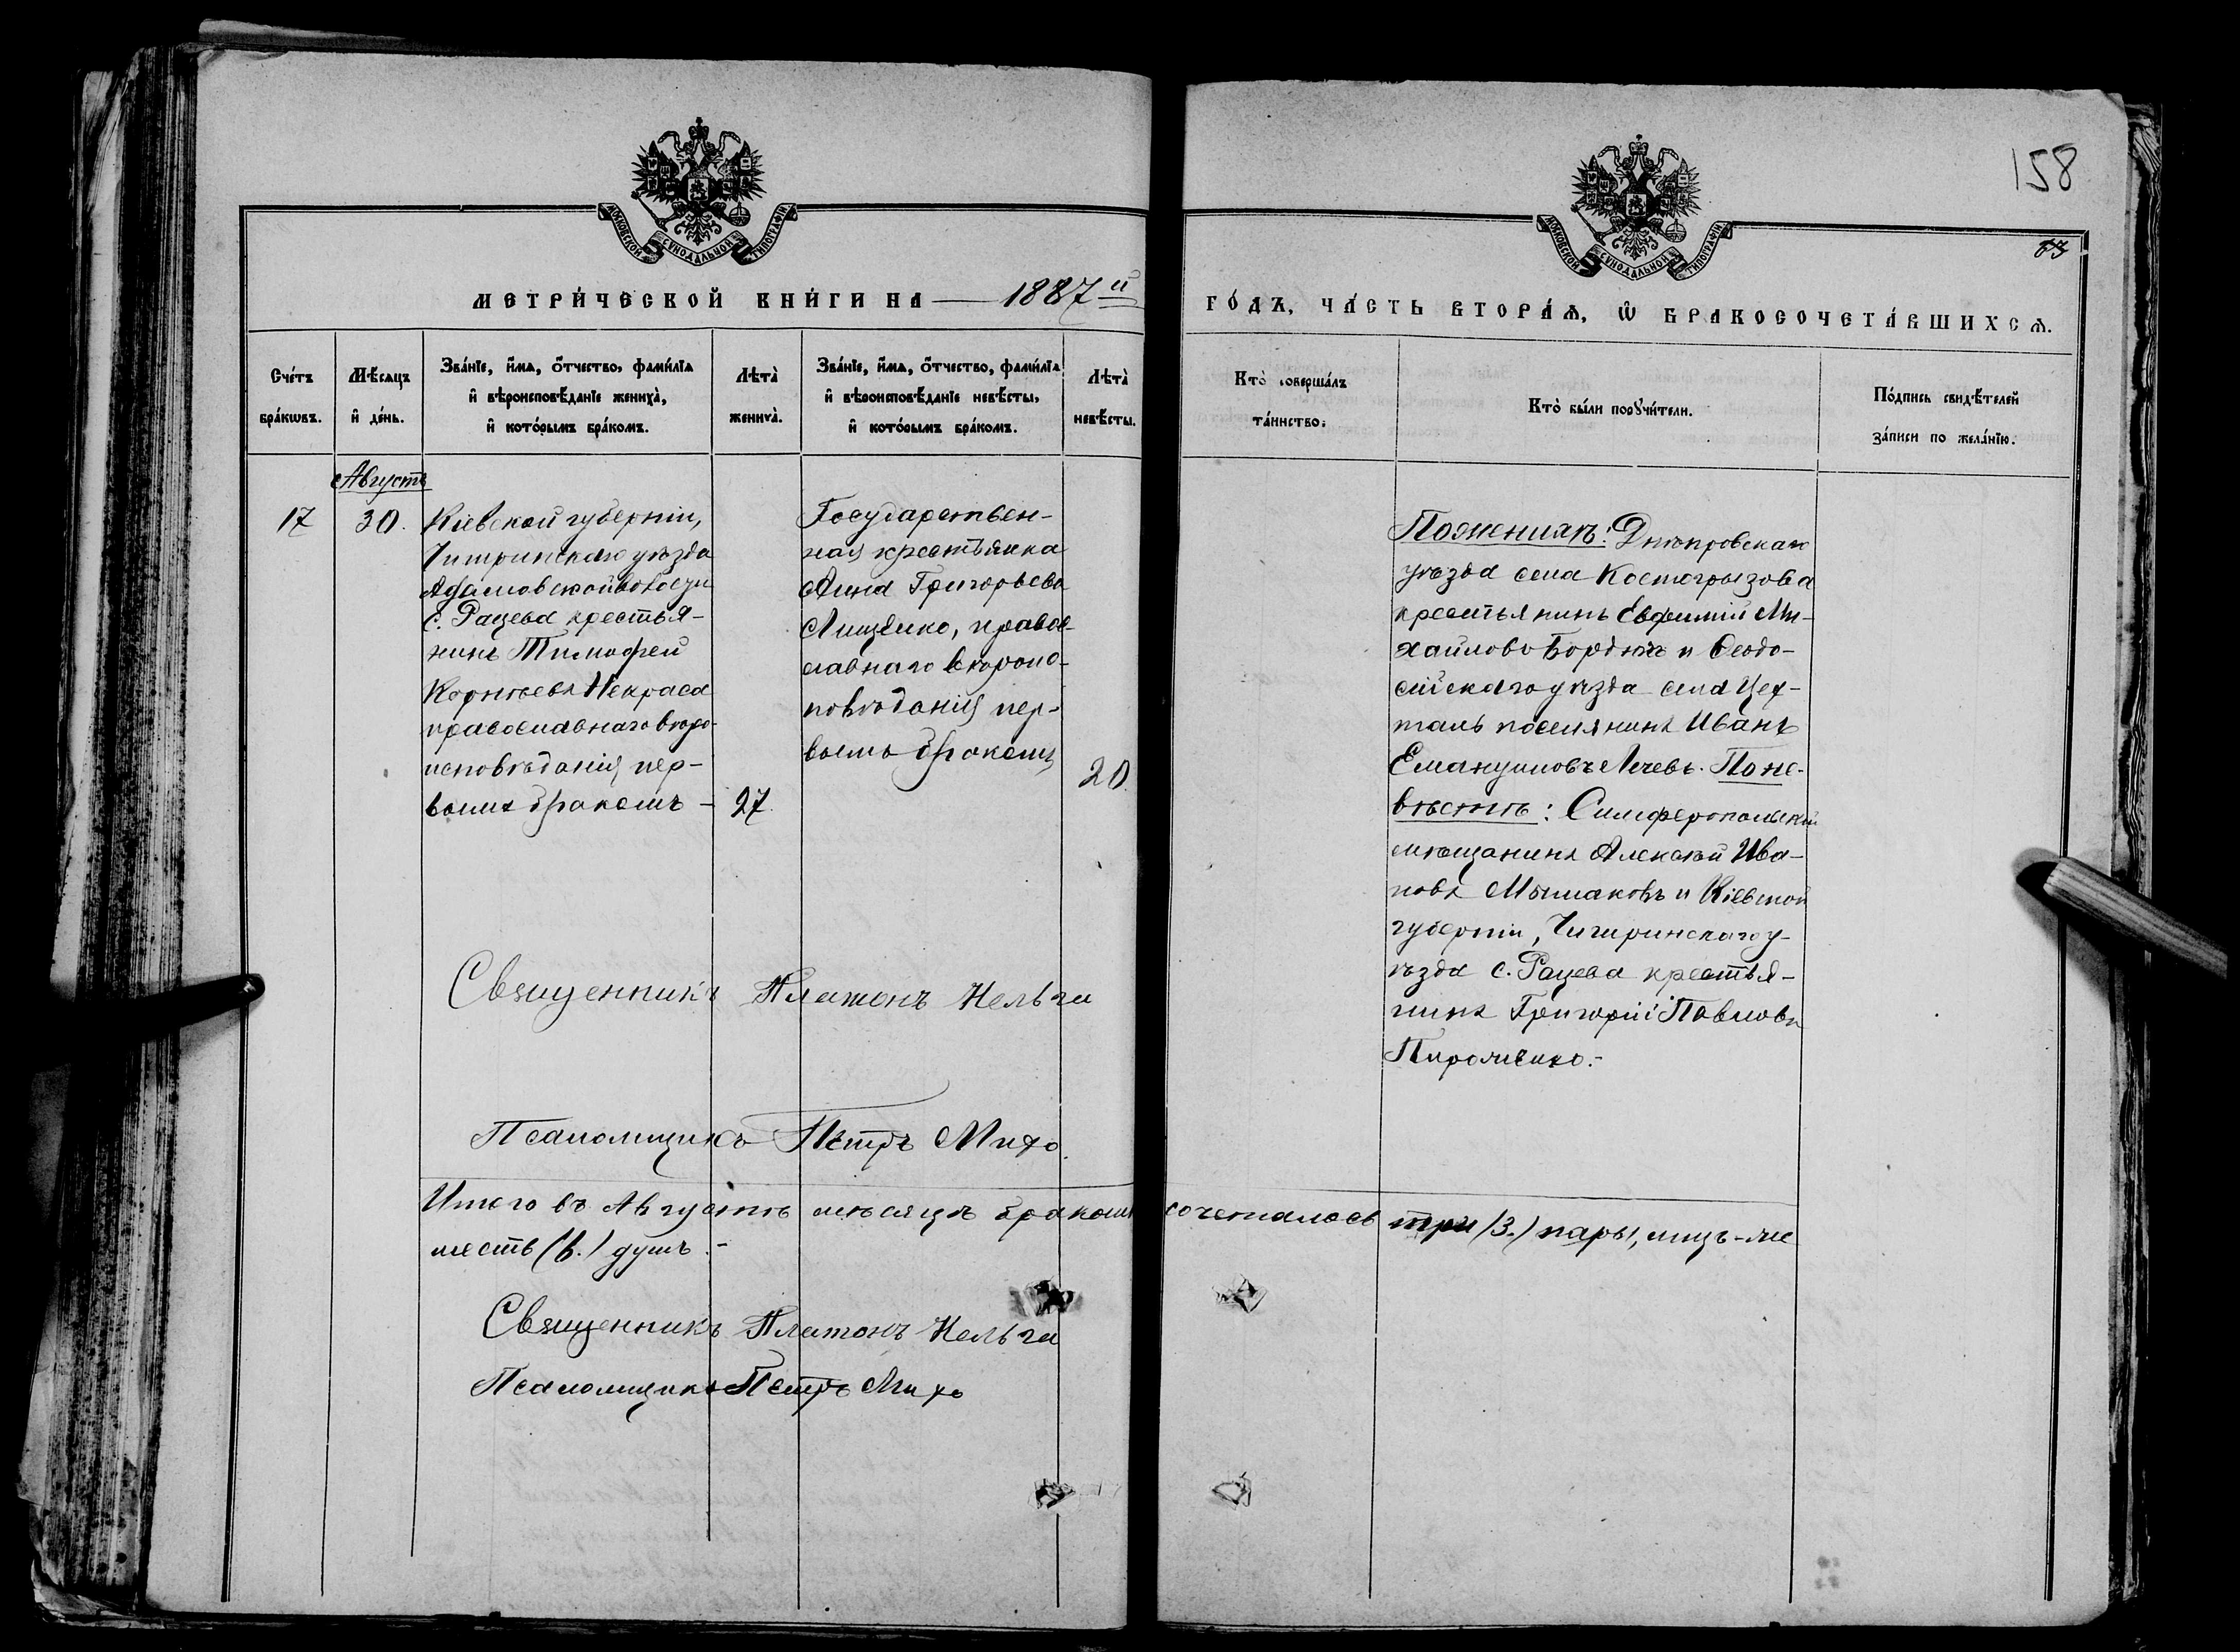 158
МОСКОВСКОЙ СѴНОДАЛЬНОЙ ТИПОГРАФІИ
МОСКОВСКОЙ СѴНОДАЛЬНОЙ ТИПОГРАФІИ
МЕТРИ́ЧЕСКОЙ КНИ́ГИ НА 1887й
ГО́ДЪ, ЧА́СТЬ ВТОРА́Ѧ, Ѽ БРАКОСОЧЕТА́ВШИХСѦ.
Сче́тъ бра́кѡвъ.
Мѣ́сѧцъ и҆ де́нь.
Зва́нїе, и҆́мѧ, ѻ҆́тчество, фами́лїа
и҆ вѣроисповѣ́данїе жениха̀,
и҆ кото́рымъ бра́комъ.
Лѣта̀ жениха̀.
Зва́нїе, и҆́мѧ, ѻ҆́тчество, фами́лїа
и҆ вѣроисповѣ́данїе невѣ́сты,
и҆ кото́рымъ бра́комъ.
Лѣта̀ невѣ́сты.
Кто̀ соверша́лъ
та́инство.
Кто̀ бы́ли порꙋчи́тели.
По́дпись свидѣ́телей
за́писи по жела́нїю.
Августъ
17
30.
Кіевской губерніи,
Чигринскаго уѣзда
Адамовской волости
с. Рацева крестья-
нинъ Тимофей
Корнѣевъ Некраса
православнаго вѣро-
исповѣданія, пер-
вымъ бракомъ -
27.
Государствен-
ная крестьянка
Анна Григорьева
Лищенко, правос-
славнаго вѣроис-
повѣданія пер-
вымъ бракомъ
20.
По женихѣ: Днѣпровскаго
уѣзда села Костогрызова
крестьянинъ Евфимій Ми-
хайловъ Бордюгъ и Ѳеодо-
сійскаго уѣзда села Цех-
таль поселянинъ Иванъ
Емануиловъ Лечевъ. По не-
вѣстѣ: Симферопольскій
мѣщанинъ Алексѣй Ива-
новъ Мышаковъ и Кіевской
губерніи, Чигиринскаго у-
ѣзда с. Рацева крестья-
нинъ Григорій Павловъ
Священникъ Платонъ Кельги
Псаломщикъ Петръ Михо.
Итого въ Августѣ мѣсяцѣ бракомъ сочеталось три (3.) пары, лицъ-ше
шесть (6.) душъ.-
Священникъ Платонъ Кельги
Псаломщикъ Петръ Михо